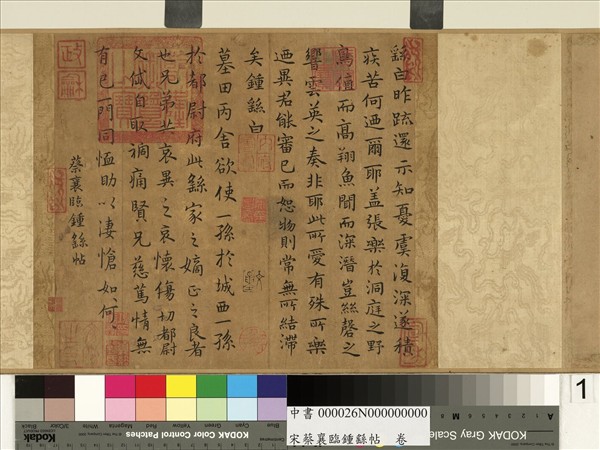 繇白昨疏還示知憂虞復深遂積
疾苦何迺爾耶蓋張樂於洞庭之野
鳥值而高翔魚聞而深潛豈絲磬之
響雲英之奏非耶此所愛有殊所樂
迺異君能審己而恕物則常無所結滯
矣鍾繇白
墓田丙舍欲使一孫於城西一孫
於都尉府此繇家之嫡正之良者
也兄弟共哀異之哀懷傷切都尉
文岱自取禍痛賢兄慈篤情無
有已一門同恤助以悽愴如何
蔡襄臨鍾繇帖
政龢
1
中書 000026N000000000
宋蔡襄臨鍾繇帖 卷
Kodak
KODAK Color Control Patches
KODAK Gray Scale
Blue
Cyan
Green
Yellow
Red
Magenta
White
3/Color
Black
A
M